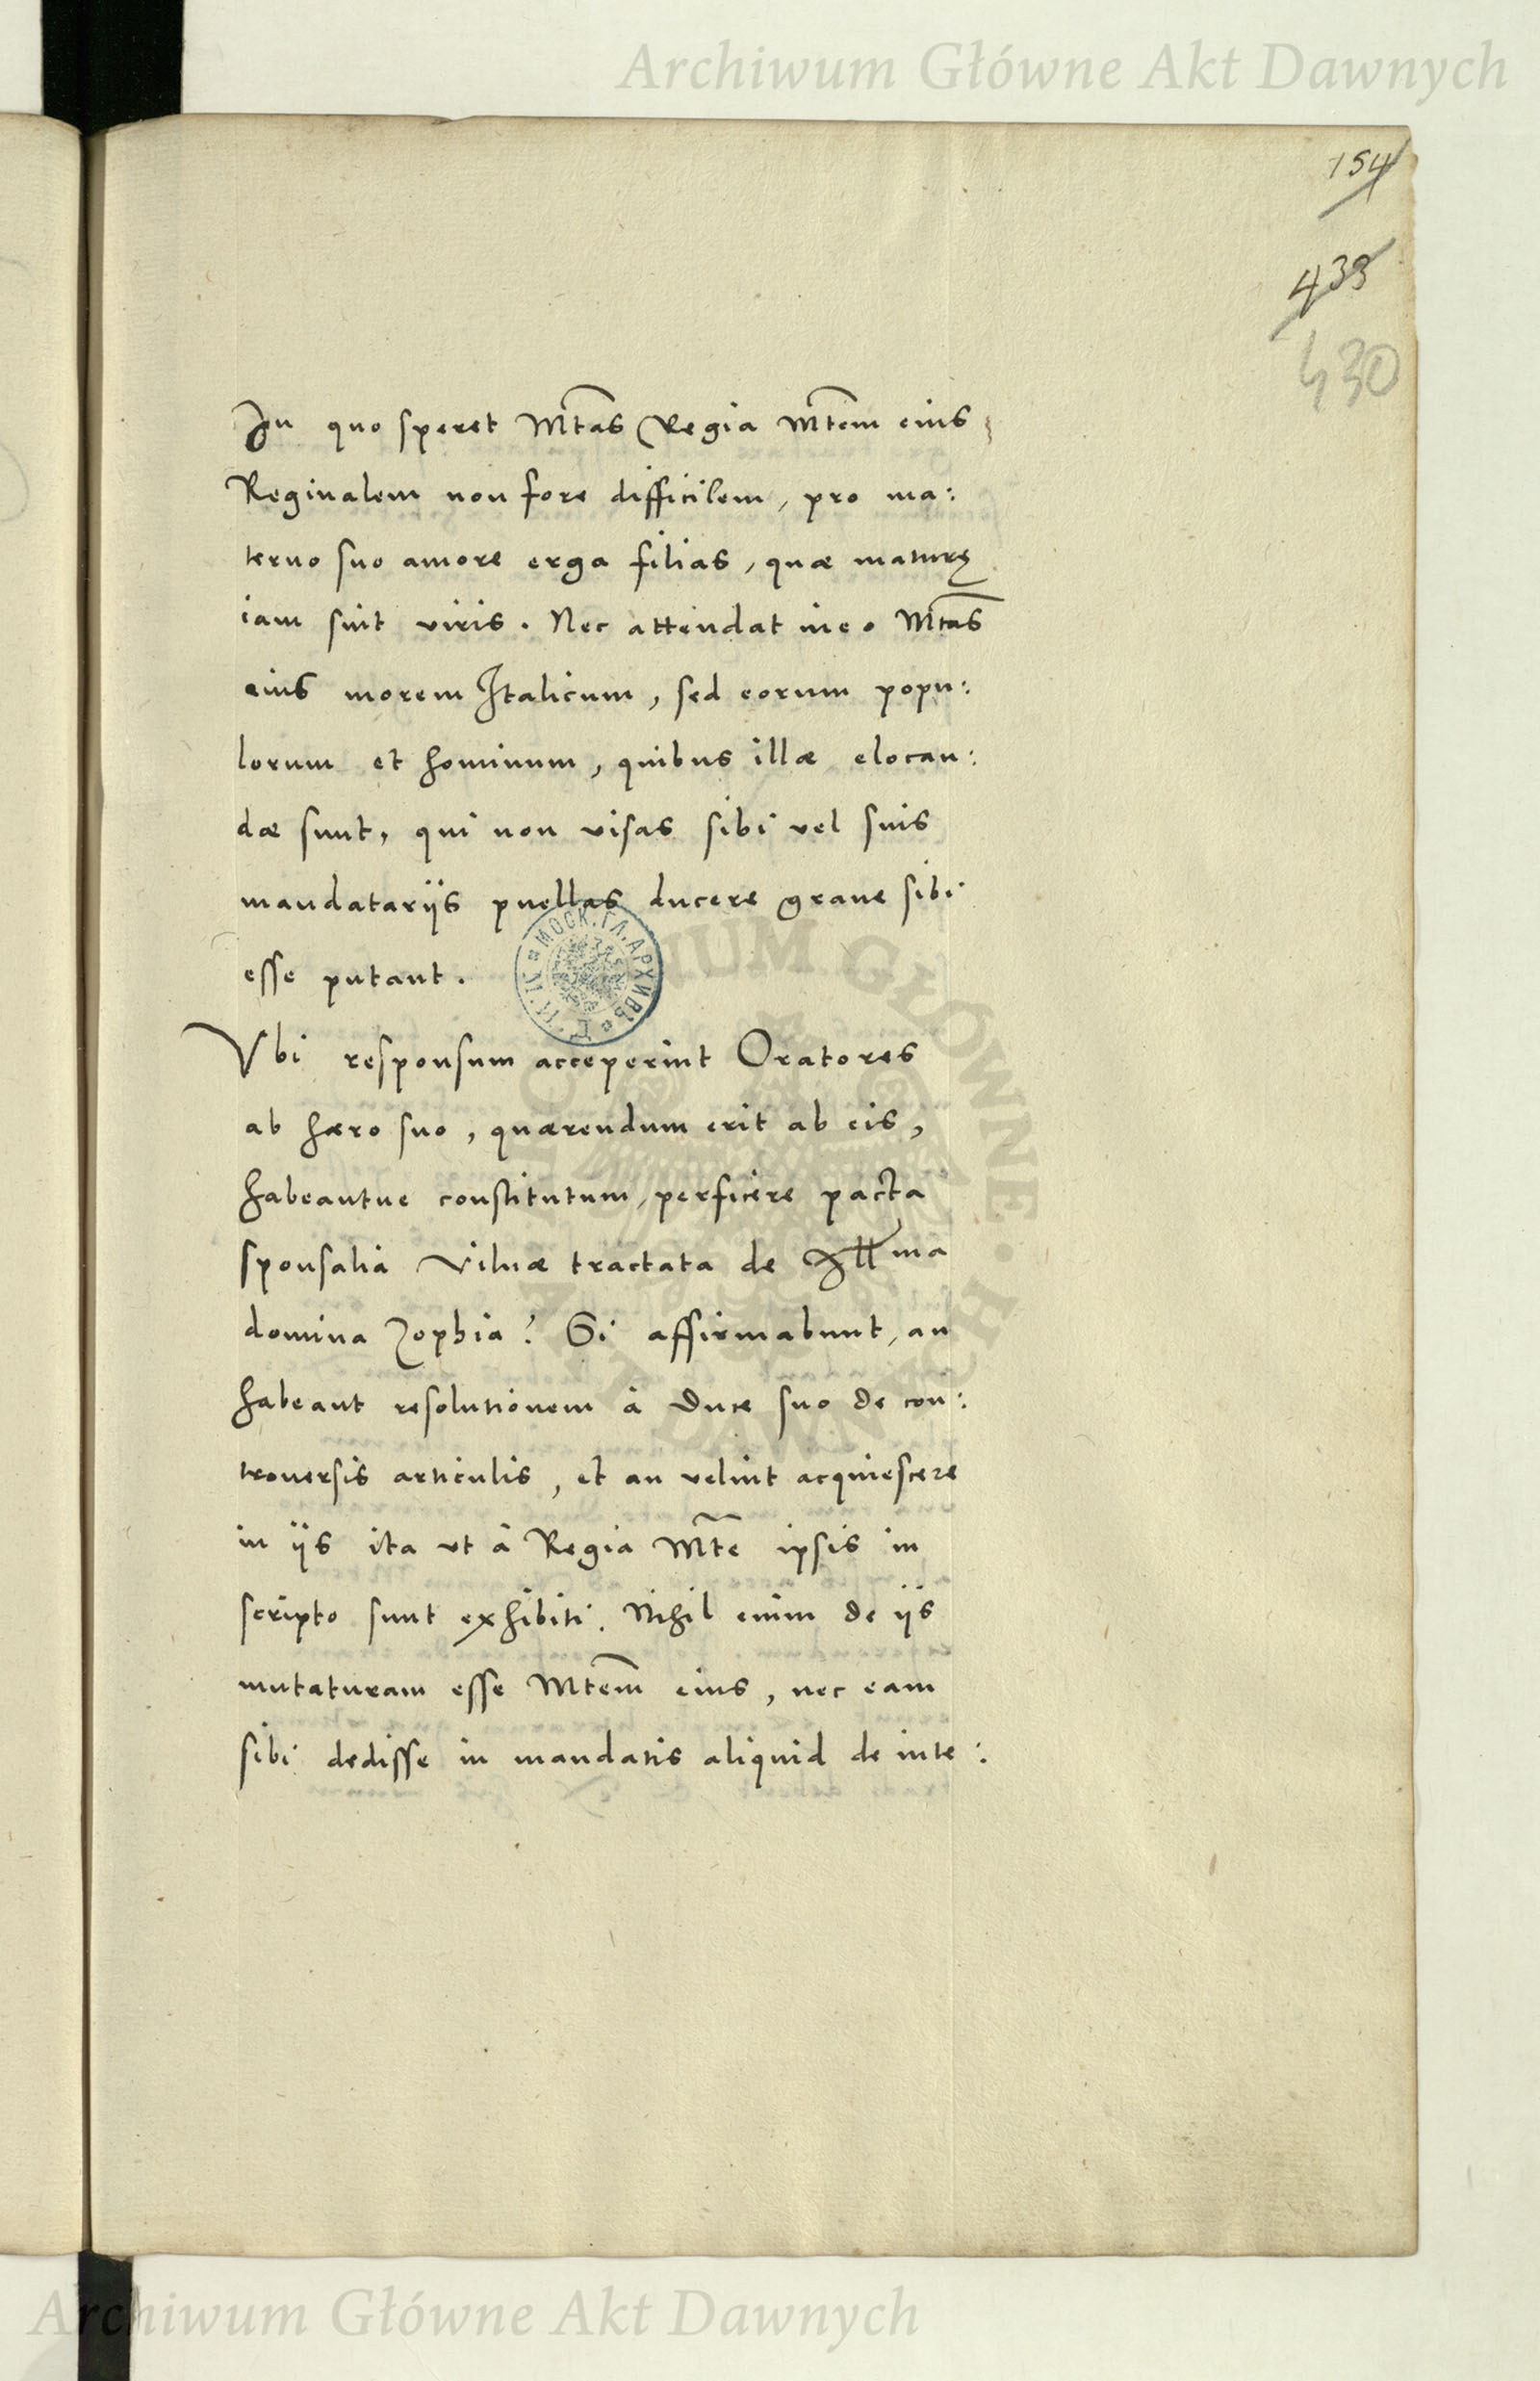 Archiwum Główne Akt Dawnych
154
439
430
In quo speret Mtas Regia Mtem eius
Reginalem non fore difficilem, pro ma:
terno suo amore erga filias, quæ maturę
iam sint viris. Nec attendat in eo Mtas
eius morem Italicum, sed eorum popu:
lorum et hominum, quibus illæ elocan:
dæ sunt, qui non visas sibi vel suis
mandatariis puellas ducere grave sibi
esse putant.
МОСК. ГЛ. АРХИВЪ
Vbi responsum acceperint Oratores
ab hæro suo, quærendum erit ab eis,
habeantne constitutum, perficere pacta
sponsalia Vilnæ tractata de Illma
domina Zophia? Si affirmabunt, an
habeant resolutionem à Duce suo de con:
trouersis articulis, et an velint acquiescere
in iis ita vt à Regia Mte ipsis in
scripto sunt exhibiti. Nihil enim de iis
mutaturam esse Mtem eius, nec eam
sibi dedisse in mandatis aliquid de inte:
Archiwum Główne Akt Dawnych